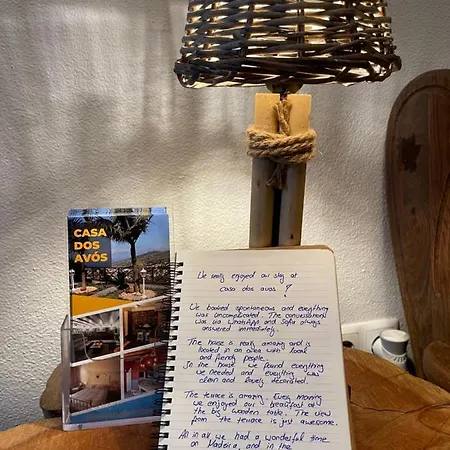 CASA
DOS
AVÓS
We really enjoyed our stay at
casa dos avos !
We booked spontaneous and everything
was uncomplicated. The conversations
was via WhatsApp and Sofia always
answered immediately.
The house is really amazing and is
located in an area with local
and friendly people.
In the house we found everything
we needed and everything was
clean and lovely decorated.
The terrace is amazing. Every morning
we enjoyed our breakfast on
the big wooden table. The view
from the terrace is just awesome.
All in all we had a wonderful time
on Madeira, and in the